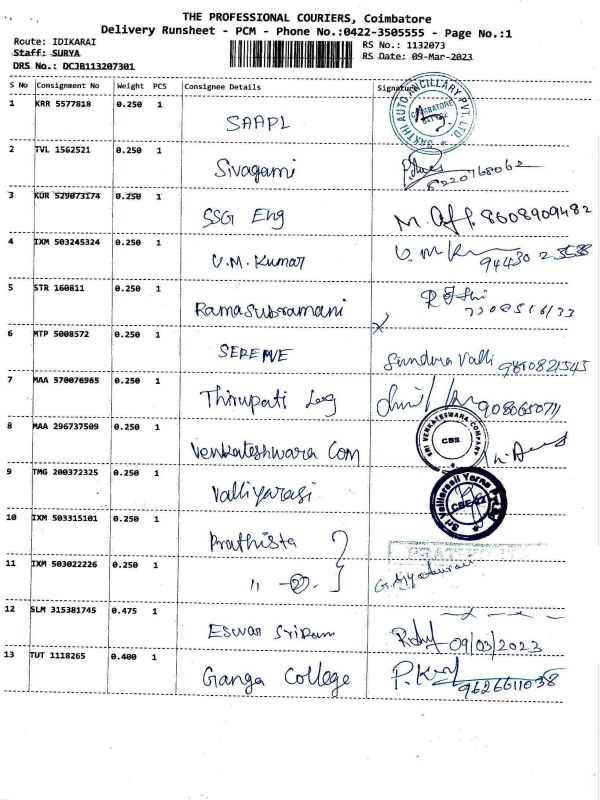 THE PROFESSIONAL COURIERS, Coimbatore
Delivery Runsheet - PCM - Phone No.:0422-3505555 - Page No.:1
Route: IDIKARAI
RS No.: 1132073
Staff: SURYA
RS Date: 09-Mar-2023
DRS No.: DCJB113207301
S No Consignment No Weight PCS Consignee Details Signature
1 KRR 5577818 0.250 1
SAAPL
SAKTHI AUTO ANCILLARY PVT. LTD. COIMBATORE
2 TVL 1562521 0.250 1
Sivagami
6220768062
3 KUR 529073174 0.250 1
SSG Eng
8608909482
4 IXM 503245324 0.250 1
V.M. Kumar
94430 23538
5 STR 160811 0.250 1
Ramasubramani
6 MTP 5008572 0.250 1
Sundara Valli 9810821545
7 MAA 570076965 0.250 1
Thirupati Log
9080650711
8 MAA 296737509 0.250 1
Venkateshwara Com
SRI VENKATESWARA COMPANY CBE
9 TMG 200372325 0.250 1
Valliyarasi
10 IXM 503315101 0.250 1
Prathista
11 IXM 503022226 0.250 1
" -②.
12 SLM 315381745 0.475 1
Eswar Sriram
09/03/2023
13 TUT 1118265 0.400 1
Ganga College
9626611038